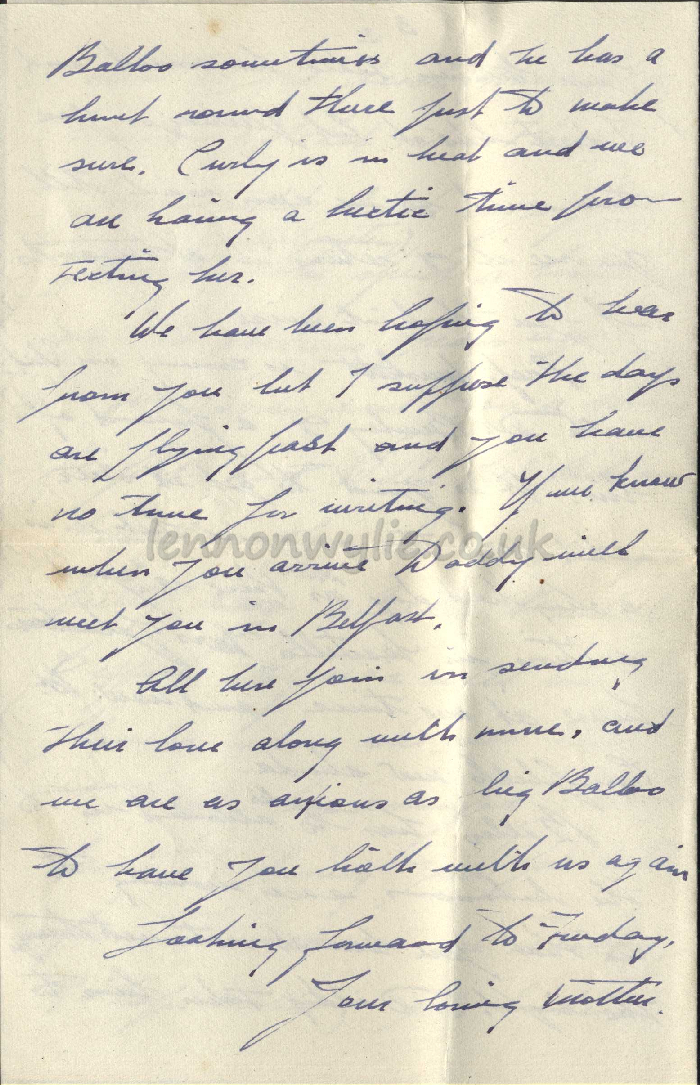 Balloo sometimes and he has a
hunt round there just to make
sure. Curly is in heat and we
are having a hectic time pro-
tecting her.
We have been hoping to hear
from you but I suppose the days
are flying past and you have
no time for writing. If we know
when you arrive Daddy will
meet you in Belfast.
All here join in sending
their love along with mine, and
we are as anxious as big Balloo
to have you both with us again
Looking forward to Friday,
Your loving Mother.
lennonwylie.co.uk